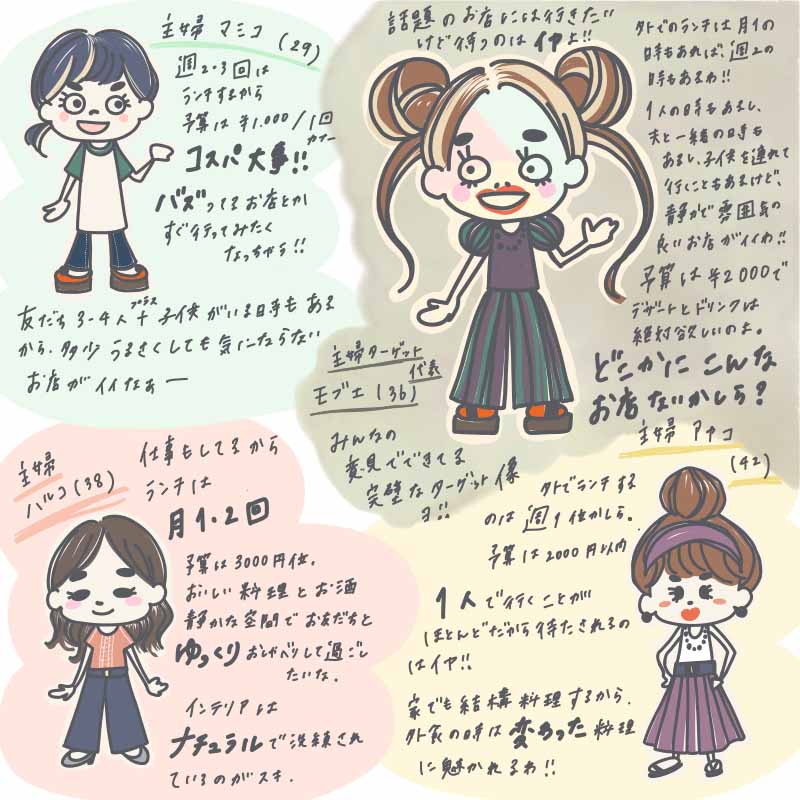 主婦 マミコ (29)
週2・3回は
ランチするから
予算は ¥1.000/1回
コスパ大事!!
バズってるお店とか
すぐ行ってみたく
なっちゃう!!
友だち 3-4人+子供がいる日もある
プラス
から、多少うるさくしても気にならない
お店がイイなぁー
話題のお店には行きたい
けど待つのはイヤよ!!
外でのランチは月1の
時もあれば、週2の
時もあるわ!!
1人の時もあるし、
夫と一緒の日時も
あるし、子供を連れて
行くこともあるけど、
静かで雰囲気の
良いお店がイイわ!!
予算は¥2000で
デザートとドリンクは
絶対欲しいのよ。
どこかにこんな
お店ないかしら?
主婦ターゲット
代表
モブエ(36)
みんなの
意見でできてる
完璧なターゲット像
ヨ!!
主婦
ハルコ(38)
仕事もしてるから
ランチは
月1・2回
予算は3000円位。
おいしい料理とお酒
静かな空間でお友だちと
ゆっくりおしゃべりして過ごし
たいな。
インテリアは
ナチュラルで洗練され
ているのがスキ.
主婦 アヤコ
(42)
外でランチする
のは週1位かしら。
予算は2000円以内
1人で行くことが
ほとんどだから待たされるの
はイヤ!!
家でも結構料理するから、
外食の時は変わった料理
に魅かれるわ!!